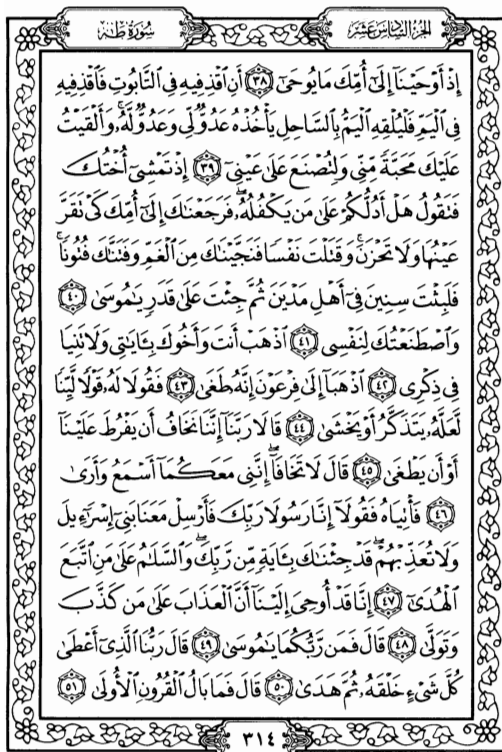 سُورَةُ طه
الجزء السادس عشر
إِذْ أَوْحَيْنَآ إِلَىٰٓ أُمِّكَ مَا يُوحَىٰٓ ﴿٣٨﴾ أَنِ ٱقْذِفِيهِ فِى ٱلتَّابُوتِ فَٱقْذِفِيهِ
فِى ٱلْيَمِّ فَلْيُلْقِهِ ٱلْيَمُّ بِٱلسَّاحِلِ يَأْخُذْهُ عَدُوٌّ لِّى وَعَدُوٌّ لَّهُۥ ۚ وَأَلْقَيْتُ
عَلَيْكَ مَحَبَّةً مِّنِّى وَلِتُصْنَعَ عَلَىٰ عَيْنِىٓ ﴿٣٩﴾ إِذْ تَمْشِىٓ أُخْتُكَ
فَتَقُولُ هَلْ أَدُلُّكُمْ عَلَىٰ مَن يَكْفُلُهُۥ ۖ فَرَجَعْنَٰكَ إِلَىٰٓ أُمِّكَ كَىْ تَقَرَّ
عَيْنُهَا وَلَا تَحْزَنَ ۚ وَقَتَلْتَ نَفْسًا فَنَجَّيْنَٰكَ مِنَ ٱلْغَمِّ وَفَتَنَّٰكَ فُتُونًا ۚ
فَلَبِثْتَ سِنِينَ فِىٓ أَهْلِ مَدْيَنَ ثُمَّ جِئْتَ عَلَىٰ قَدَرٍ يَٰمُوسَىٰ ﴿٤٠﴾
وَٱصْطَنَعْتُكَ لِنَفْسِى ﴿٤١﴾ ٱذْهَبْ أَنتَ وَأَخُوكَ بِـَٔايَٰتِى وَلَا تَنِيَا
فِى ذِكْرِى ﴿٤٢﴾ ٱذْهَبَآ إِلَىٰ فِرْعَوْنَ إِنَّهُۥ طَغَىٰ ﴿٤٣﴾ فَقُولَا لَهُۥ قَوْلًا لَّيِّنًا
لَّعَلَّهُۥ يَتَذَكَّرُ أَوْ يَخْشَىٰ ﴿٤٤﴾ قَالَا رَبَّنَآ إِنَّنَا نَخَافُ أَن يَفْرُطَ عَلَيْنَآ
أَوْ أَن يَطْغَىٰ ﴿٤٥﴾ قَالَ لَا تَخَافَآ ۖ إِنَّنِى مَعَكُمَآ أَسْمَعُ وَأَرَىٰ
﴿٤٦﴾ فَأْتِيَاهُ فَقُولَآ إِنَّا رَسُولَا رَبِّكَ فَأَرْسِلْ مَعَنَا بَنِىٓ إِسْرَٰٓءِيلَ
وَلَا تُعَذِّبْهُمْ ۖ قَدْ جِئْنَٰكَ بِـَٔايَةٍ مِّن رَّبِّكَ ۖ وَٱلسَّلَٰمُ عَلَىٰ مَنِ ٱتَّبَعَ
ٱلْهُدَىٰٓ ﴿٤٧﴾ إِنَّا قَدْ أُوحِىَ إِلَيْنَآ أَنَّ ٱلْعَذَابَ عَلَىٰ مَن كَذَّبَ
وَتَوَلَّىٰ ﴿٤٨﴾ قَالَ فَمَن رَّبُّكُمَا يَٰمُوسَىٰ ﴿٤٩﴾ قَالَ رَبُّنَا ٱلَّذِىٓ أَعْطَىٰ
كُلَّ شَىْءٍ خَلْقَهُۥ ثُمَّ هَدَىٰ ﴿٥٠﴾ قَالَ فَمَا بَالُ ٱلْقُرُونِ ٱلْأُولَىٰ ﴿٥١﴾
٣١٤